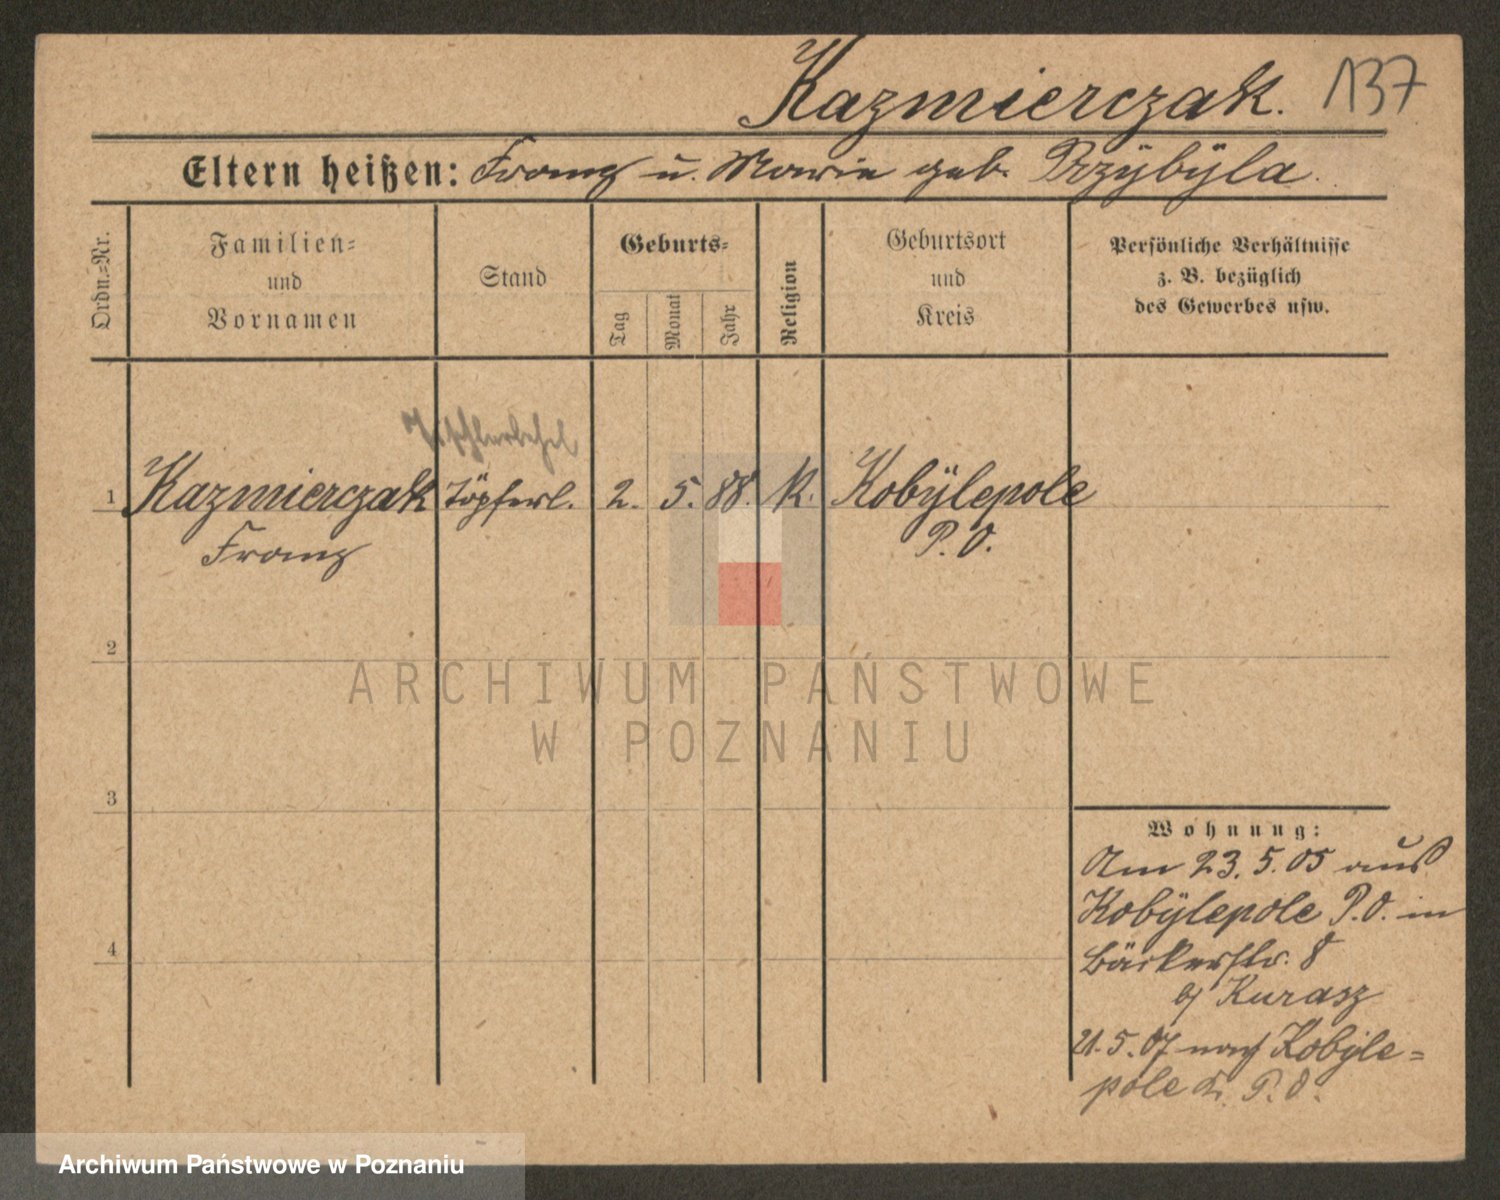 Kazmierczak. 137
Eltern heißen: Franz u. Marie geb. Przÿbÿla.
Ordn.=Nr.
Familien=
und
Vornamen
Stand
Geburts=
Tag
Monat
Jahr
Religion
Geburtsort
und
Kreis
Persönliche Verhältnisse
z. B. bezüglich
des Gewerbes usw.
1 Kazmierczak Töpferl. 2. 5. 88. k. Kobÿlepole
Franz P. O.
2
ARCHIWUM PAŃSTWOWE
W POZNANIU
3
4
Wohnung:
Am 23. 5. 05 aus
Kobÿlepole P. O. in
Bäckerstr. 8
b/ Kurasz
21. 5. 07 nach Kobÿle=
pole K. P. O.
Archiwum Państwowe w Poznaniu